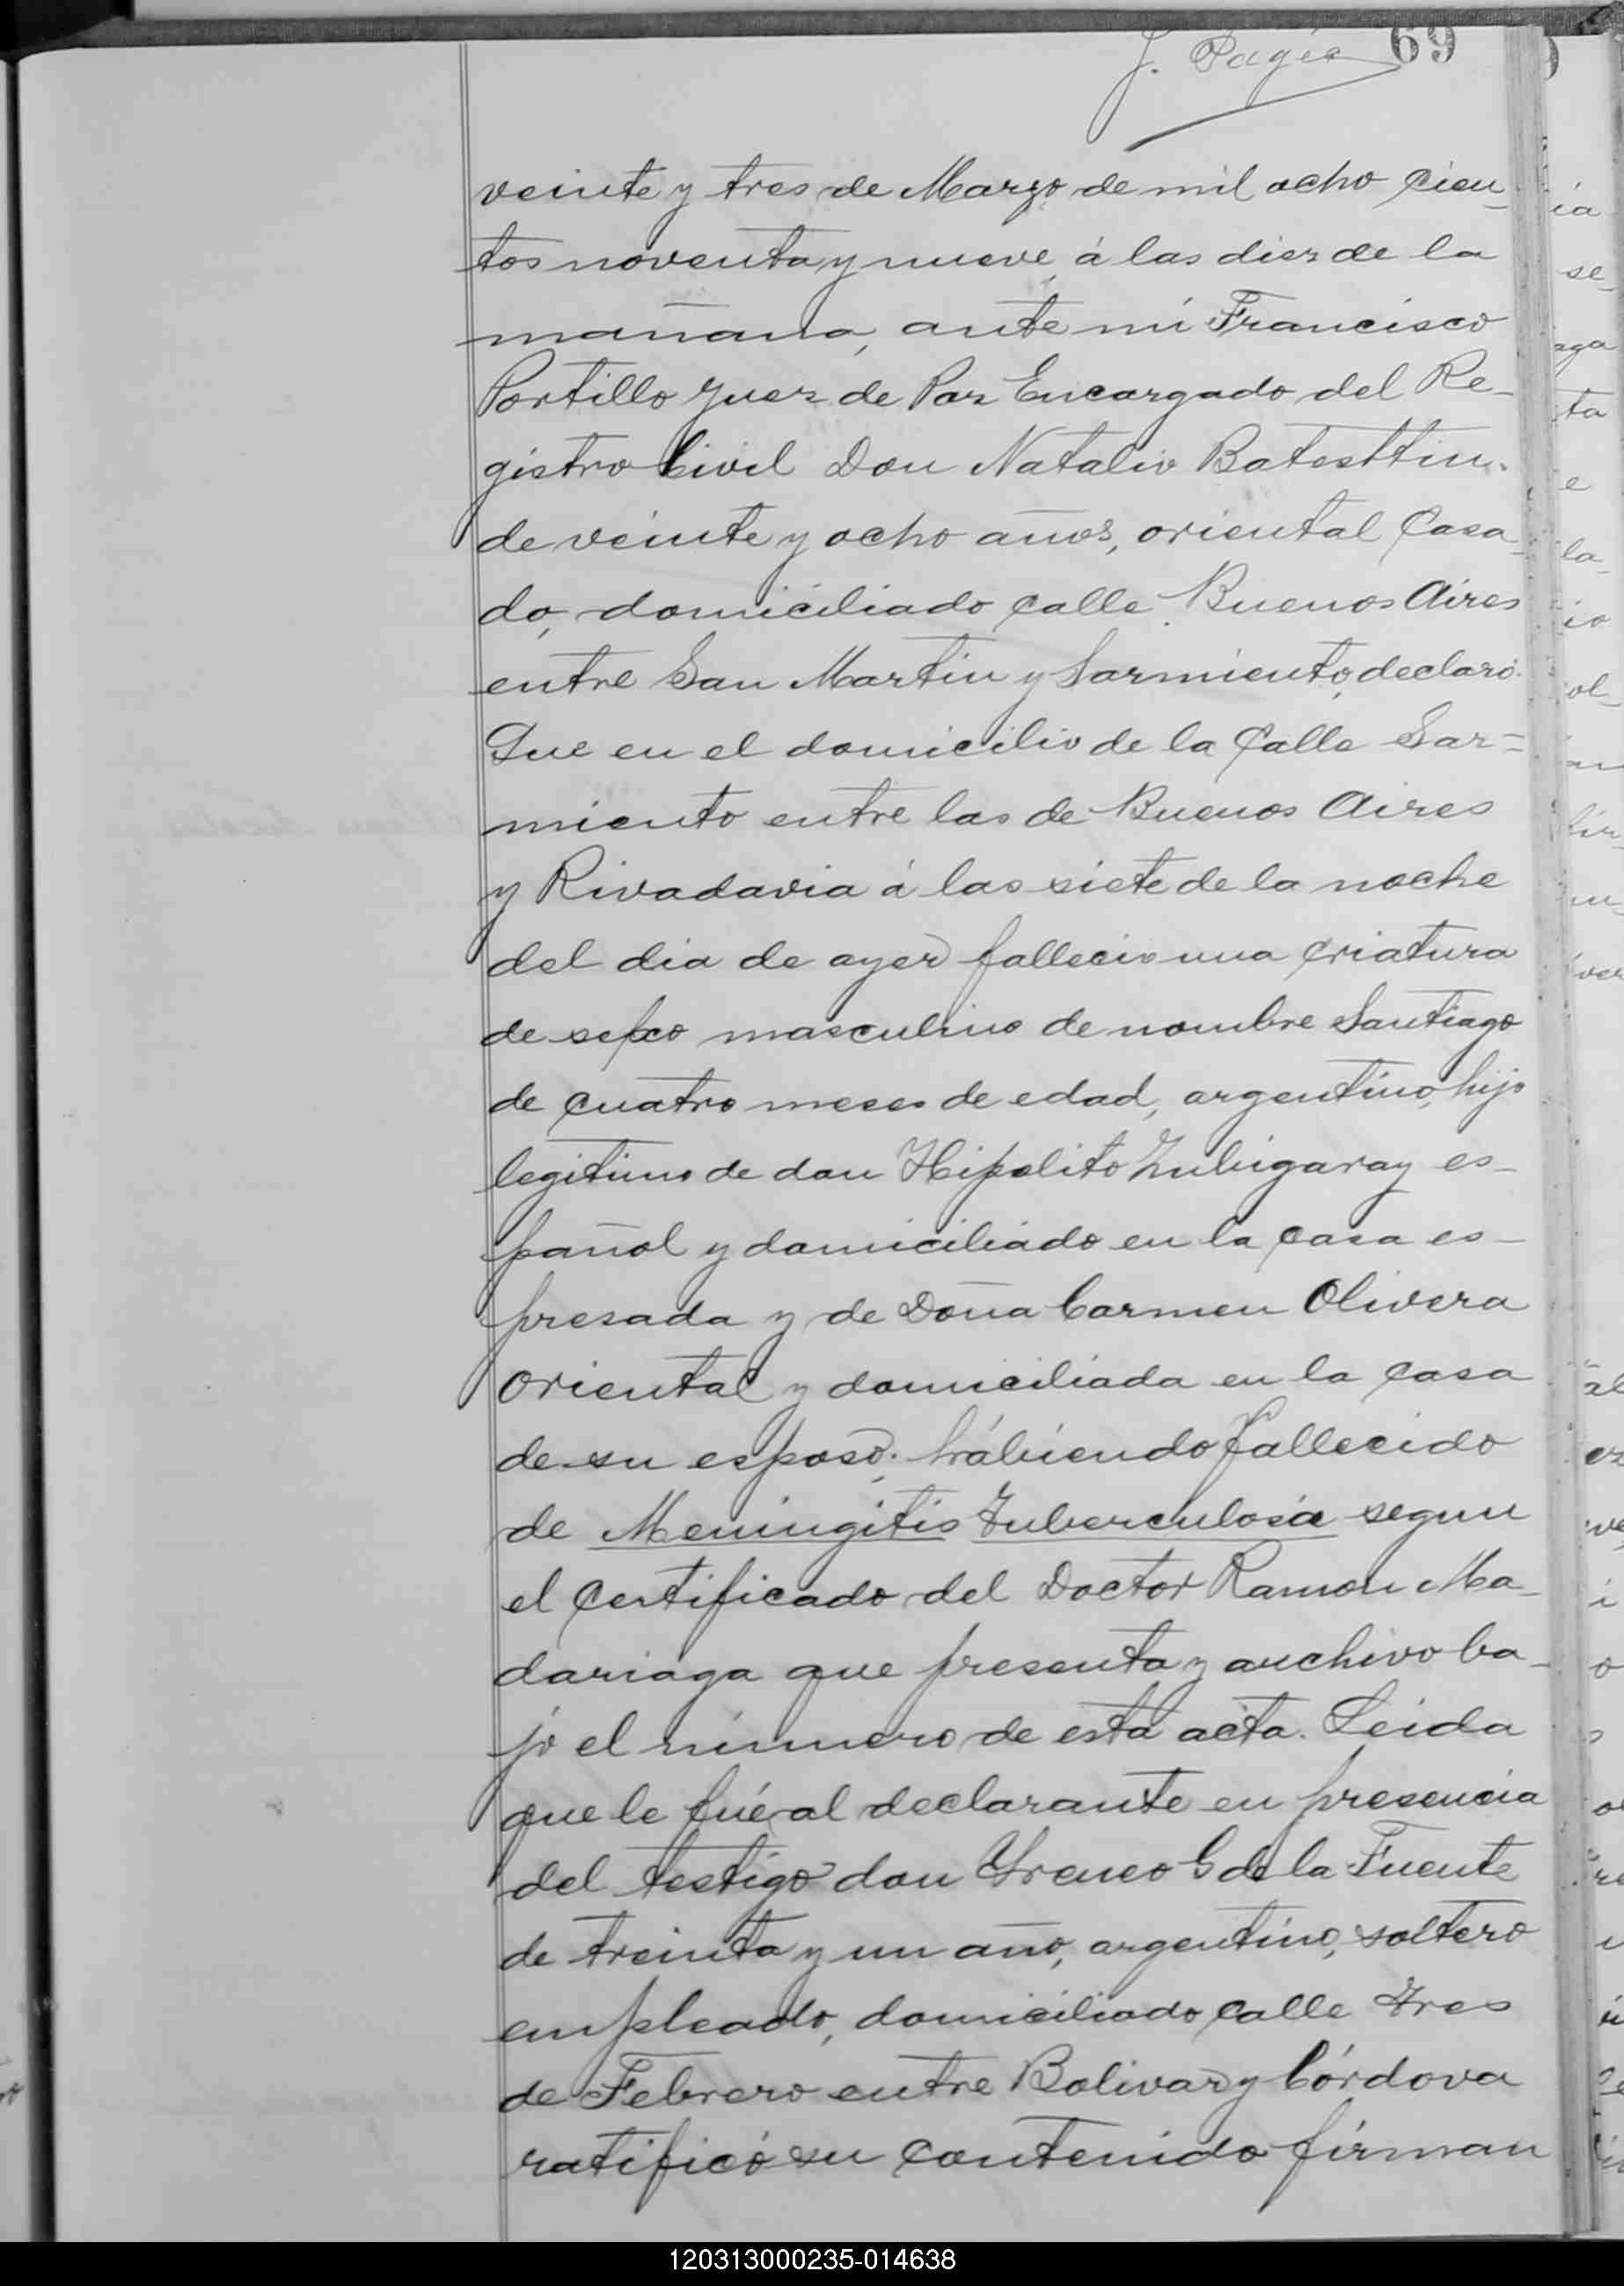 J. Pagés 69
veinte y tres de Marzo de mil ocho cien-
tos noventa y nueve, á las diez de la
mañana, ante mi Francisco
Portillo Juez de Paz Encargado del Re-
gistro Civil Don Natalio Batesttin.
de veinte y ocho años, oriental Casa-
do, domiciliado calle Buenos Aires
entre San Martin y Sarmiento, declaró:
Que en el domicilio de la Calle Sar=
miento entre las de Buenos Aires
y Rivadavia á las siete de la noche
del dia de ayer fallecio una criatura
de sexo masculino de nombre Santiago
de cuatro meses de edad, argentino, hijo
legitimo de don Hipolito Zubigaray es-
pañol y domiciliado en la casa es-
presada y de Doña Carmen Olivera
oriental y domiciliada en la casa
de su esposo; habiendo fallecido
de Meningitis Tuberculosa segun
el certificado del Doctor Ramon Ma-
dariaga que presenta y archivo ba-
jo el número de esta acta. Leida
que le fué al declarante en presencia
del testigo don Yreneo G de la Fuente
de treinta y un año, argentino, soltero
empleado, domiciliado calle Tres
de Febrero entre Bolivar y Córdova
ratificó su contenido firman
120313000235-014638